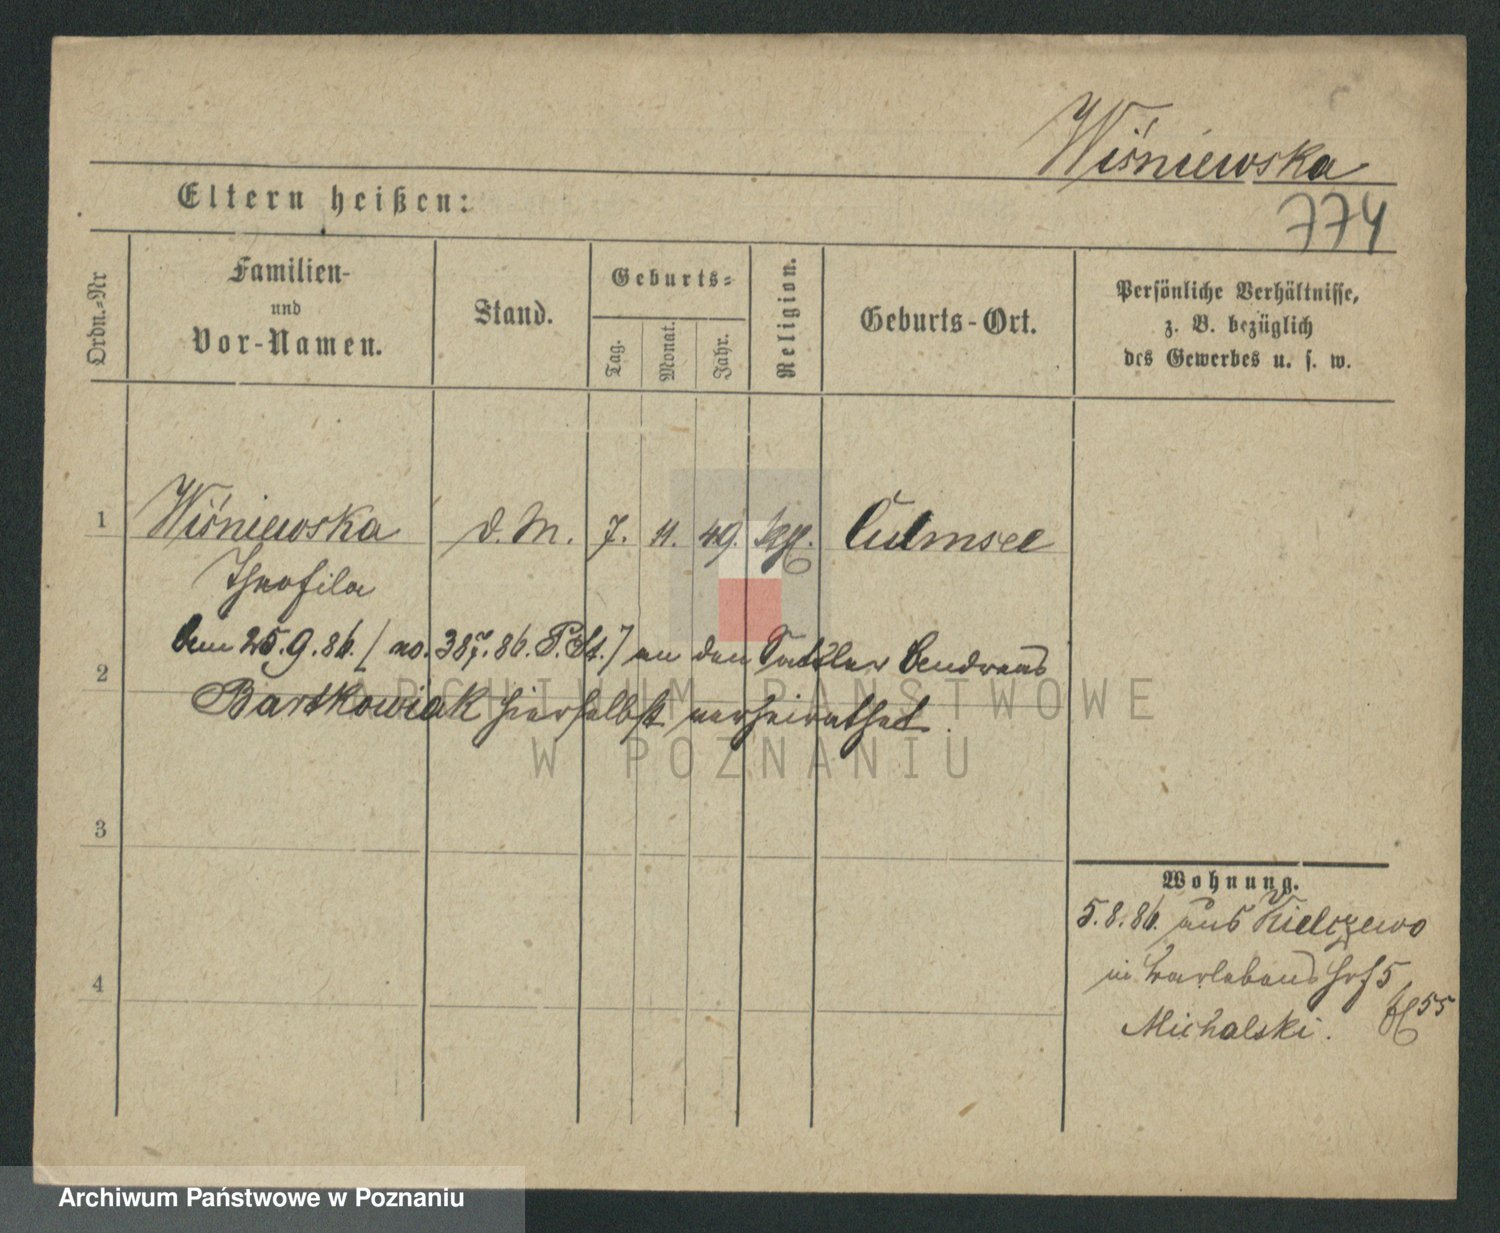 Wiśniewska
774
Eltern heißen:
Ordn.-Nr
Familien-
und
Vor-Namen.
Stand.
Geburts-
Tag.
Monat.
Jahr.
Religion.
Geburts-Ort.
Persönliche Verhältnisse,
z. B. bezüglich
des Gewerbes u. s. w.
1 Wiśniewska d. M. 7. 11. 49. kgl. Culmsee
Theofila
2 25.9.86. / no. 86. P. / an den Sattler
Bartkowiak hierselbst verheirathet.
3
4
Wohnung.
5.8.86. aus Kielczewo
in 5
Michalski. 55
ARCHIWUM PAŃSTWOWE
W POZNANIU
Archiwum Państwowe w Poznaniu